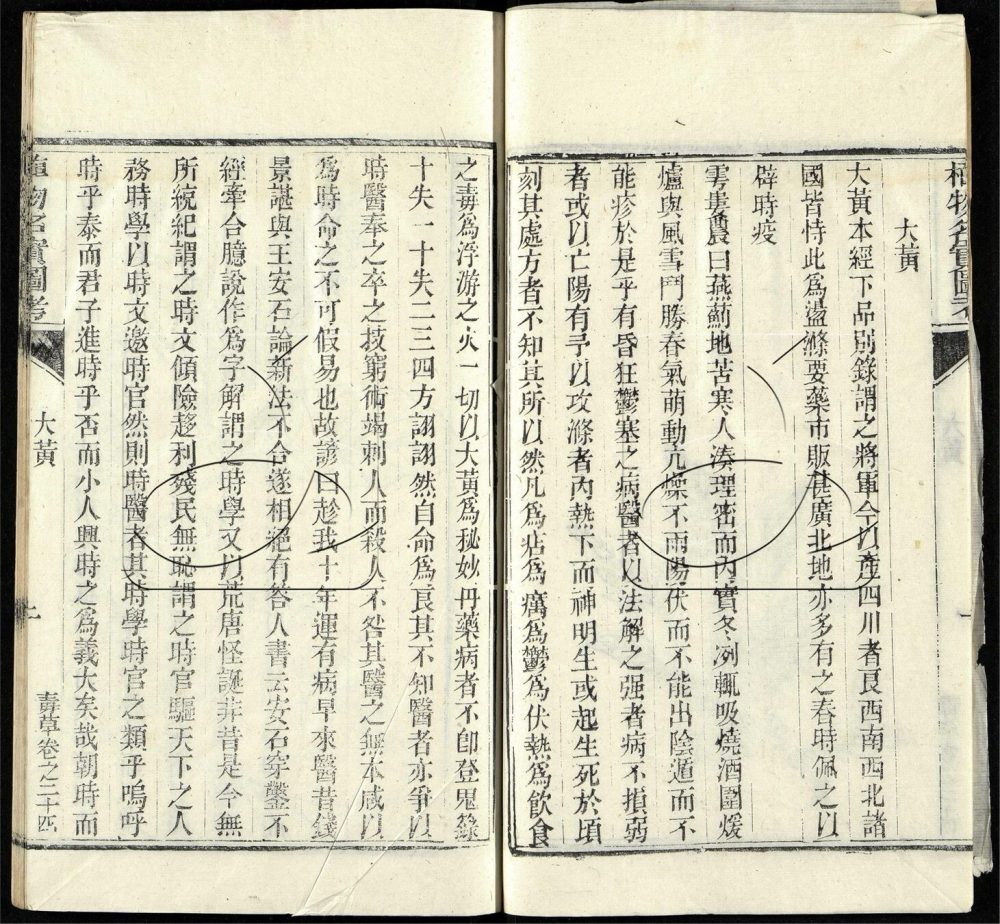 植物名實圖考
大黃
大黃本經下品別錄謂之將軍今以產四川者良西南西北諸
國皆恃此為盪滌要藥市販甚廣北地亦多有之春時佩之以
辟時疫
雩婁農曰燕薊地苦寒人湊理密而內實冬冽輒吸燒酒圍煖
爐與風雪鬥勝春氣萌動亢燥不雨陽伏而不能出陰遁而不
能疹於是乎有昏狂鬱塞之病醫者以法解之强者病不損弱
者或以亡陽有予以攻滌者內熱下而神明生或起生死於頃
刻其處方者不知其所以然凡為痁為癘為鬱為伏熱為飲食
之毒為浮游之火一切以大黃為秘妙丹藥病者不卽登鬼錄
十失一十失二三四方詡詡然自命為良其不知醫者亦爭以
時醫奉之卒之技窮術竭刺人而殺人不咎其醫之無本咸以
為時命之不可假易也故諺曰趁我十年運有病早來醫昔錢
景諶與王安石論新法不合遂相絕有答人書云安石穿鑿不
經牽合臆說作為字解謂之時學又以荒唐怪誕非昔是今無
所統紀謂之時文傾險趍利殘民無恥謂之時官驅天下之人
務時學以時文邀時官然則時醫者其時學時官之類乎嗚呼
時乎泰而君子進時乎否而小人興時之為義大矣哉朝時而
植物名實圖考
大黃
毒草卷之二十四